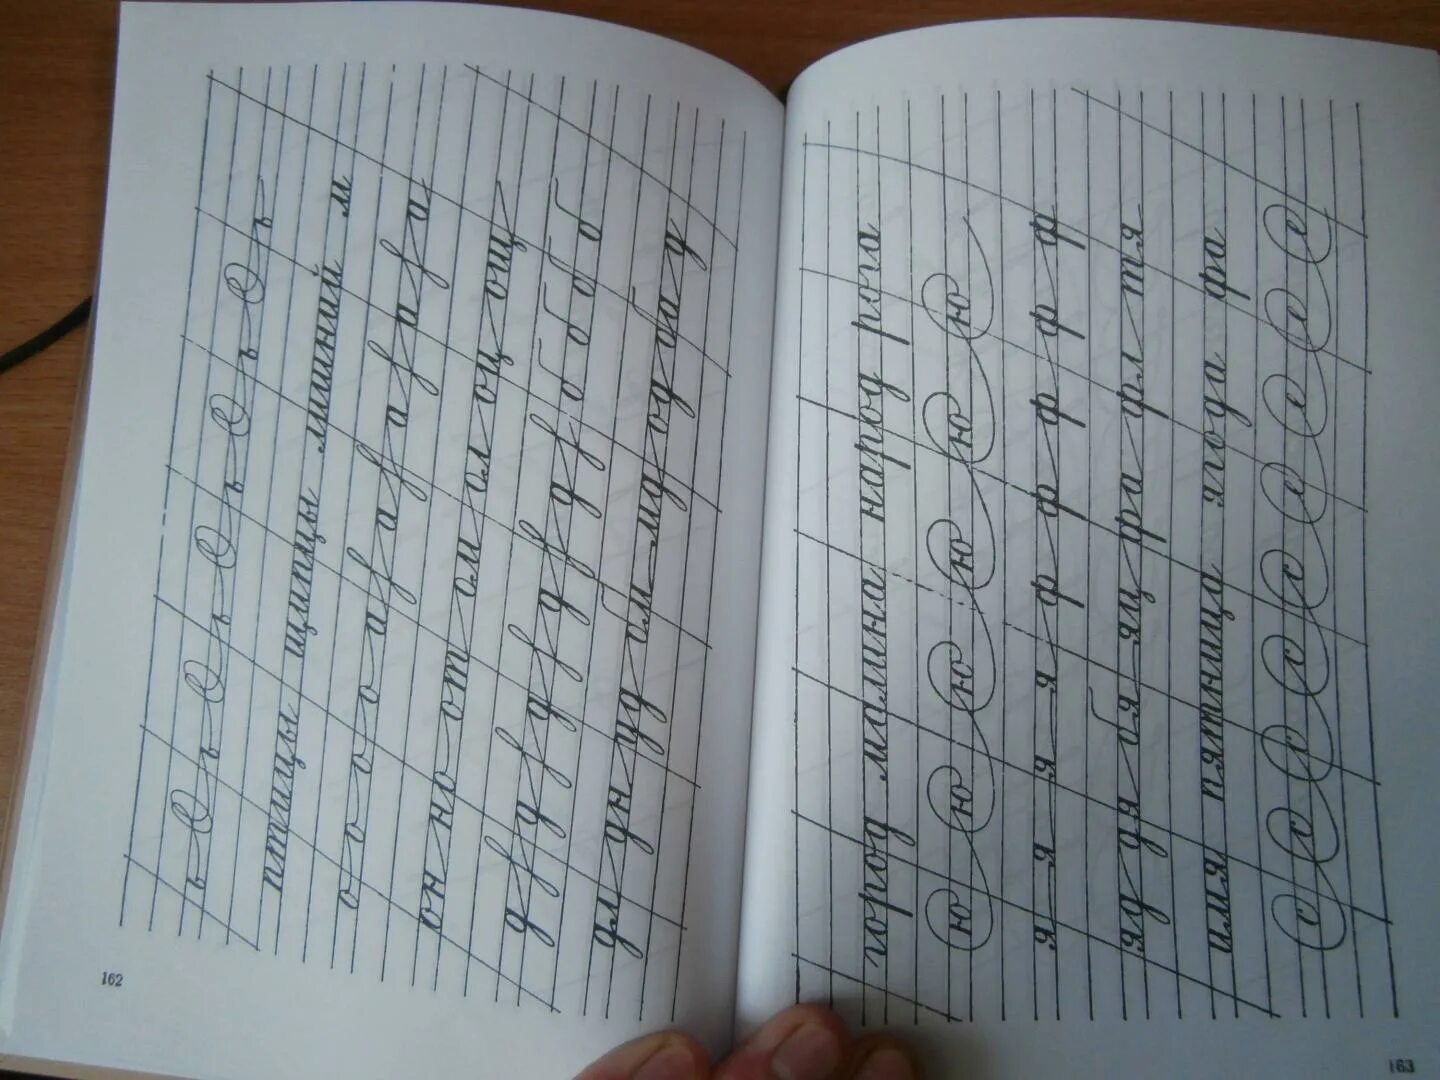 ъ О ъ О ъ О ъ О ъ О ъ
птицы щипцы м
о о о о а f а f а f а f а
он но от ом ол оц ощ
д f д f д f д f д f б б б б
дл дн уд мд од ба д
162
город малина народ рога
ю ю ю ю ю ю
я я я я ф ф ф ф ф
яд дя бя ящ фа фл тя
имя пятница ягода фа
с с с с с е е е е
163